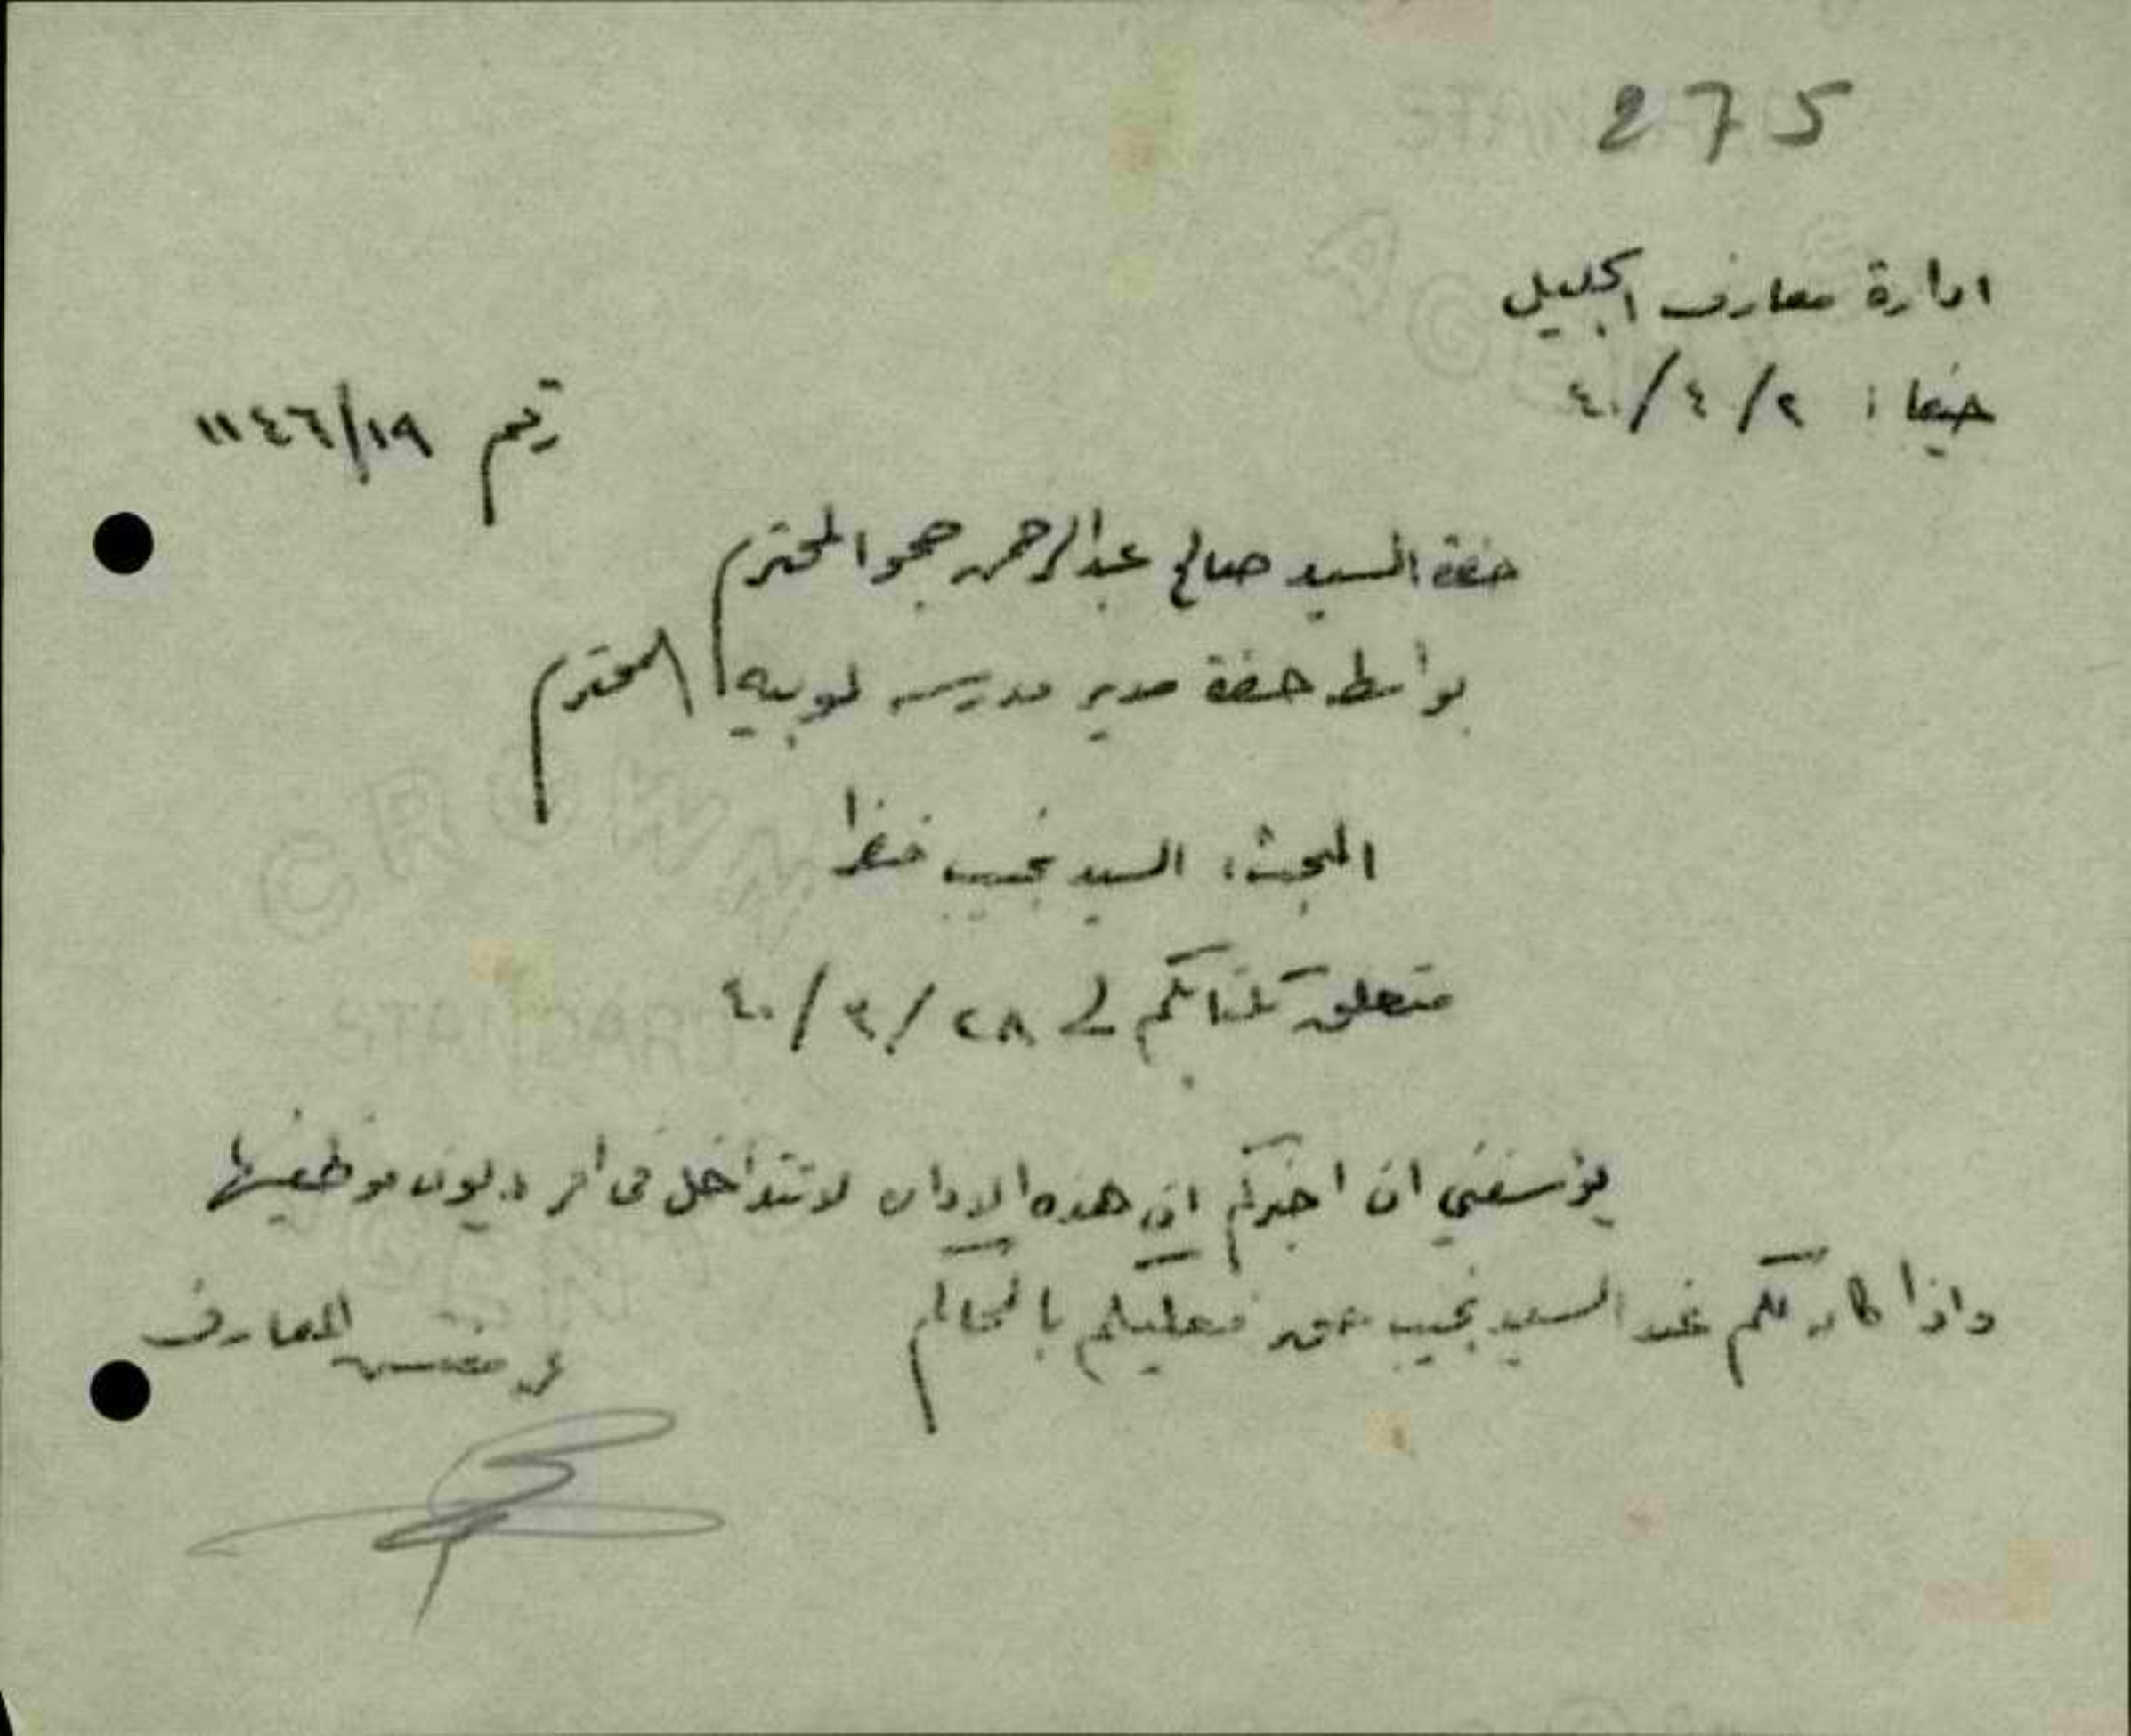 275
ادارة معارف الجليل
حيفا : ٢/٤/٤٠
رقم ١١٤٦/١٩
حضرة السيد صالح عبدالرحمن عجو المحترم
بواسطة حضرة مدير مدرسة لوبيه المحترم
المبحث: السيد نجيب خضرا
متعلق بكتابكم في ٢٨/٣/٤٠
يؤسفني ان اخبركم ان هذه الادارة لا تتداخل في امر ديون موظفيها
واذا كان لكم عند السيد نجيب حق فعليكم بالمحاكم
عن مفتش المعارف
CROWN
STANDARD
AGENT